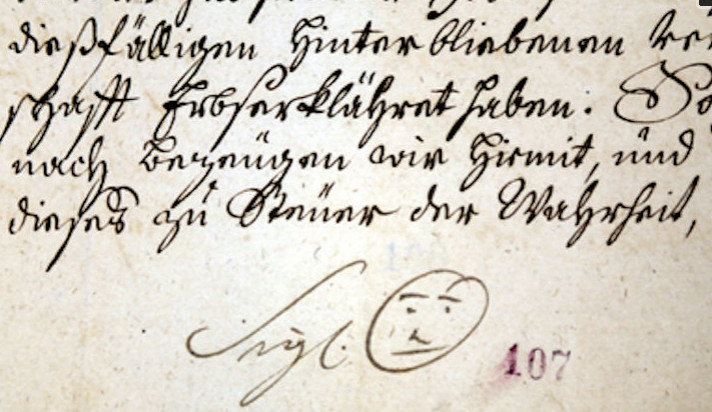 dießfälligen Hinterbliebenen
schafft Erbserklähret haben. So
nach bezeügen wir hiemit, und
dieses zu Steüer der Wahrheit,
Sigl.
107